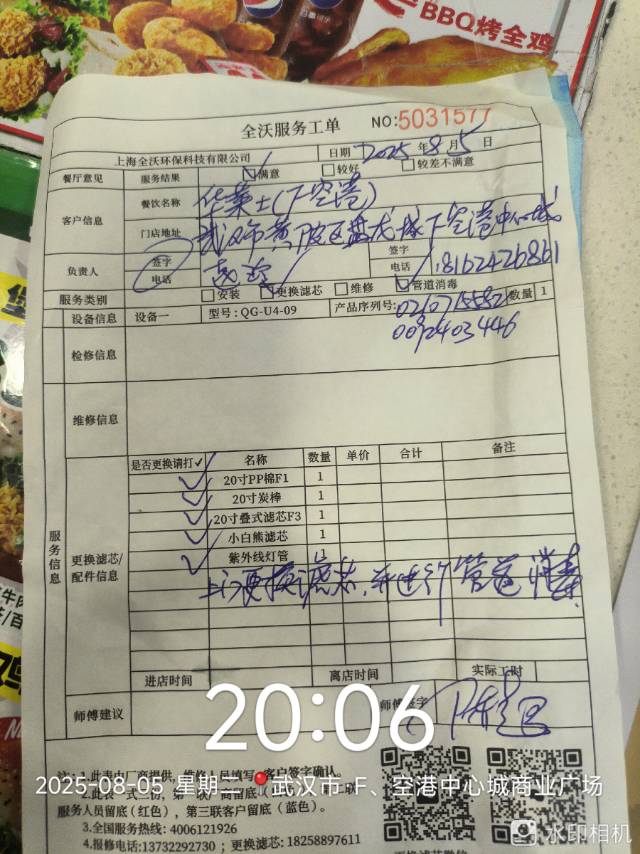 BBQ烤全鸡
全沃服务工单 NO:5031577
上海全沃环保科技有限公司 日期 2025年8月5日
餐厅意见 服务结果 ☑满意 □较好 □较差不满意
客户信息 餐饮名称 华莱士(下空港)
门店地址 武汉市黄陂区盘龙城下空港中心城
负责人 签字 签字
电话 电话 18162426861
服务类别 □安装 ☑更换滤芯 □维修 ☑管道消毒
设备信息 设备一 型号:QG-U4-09 产品序列号: 数量 1
0092403446
检修信息
维修信息
服务信息
更换滤芯/配件信息
是否更换请打✓ 名称 数量 单价 合计 备注
✓ 20寸PP棉F1 1
✓ 20寸炭棒 1
✓ 20寸叠式滤芯F3 1
✓ 小白熊滤芯 1
✓ 紫外线灯管
上门更换滤芯,并进行管道消毒
进店时间 离店时间 实际工时
师傅建议 师傅签字
20:06
注:1.此表由厂商提供,维修人员填写,客户签字确认。
2025-08-05 星期二 武汉市·F、空港中心城商业广场
服务人员留底(红色),第三联客户留底(蓝色)。
3.全国服务热线: 4006121926
4.报修电话:13732292730 ; 更换滤芯: 18258897611
水印相机